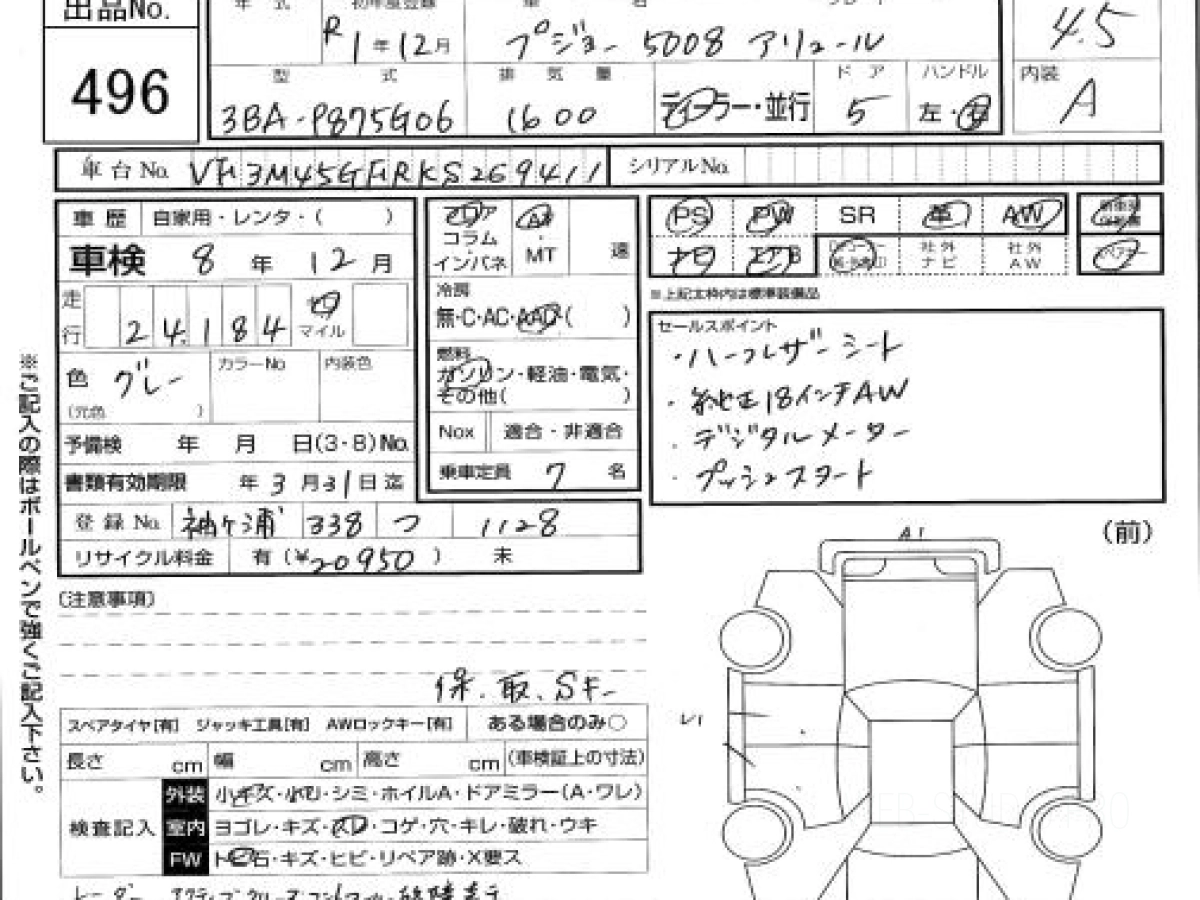 出品No.
496
年 式
初年度登録
車 名
R 1年12月
プジョー 5008 アリュール
4.5
型 式
排 気 量
ドア
ハンドル
内装
3BA-P875G06
1600
ディーラー・並行
5
左・右
A
車台No. VF3M45GFRKS269411
シリアルNo.
車歴 自家用・レンタ・( )
フロア
コラム
インパネ
AT
・
MT
速
PS PW SR 革 AW
ナビ エアB
社外
ナビ
社外
AW
車検 8年12月
※上記太枠内は標準装備品
走行 24,184 マイル
冷房
無・C・AC・AAC( )
セールスポイント
・ハーフレザーシート
・純正18インチAW
・デジタルメーター
・プッシュスタート
色 グレー
(元色 )
カラーNo
内装色
燃料
ガソリン・軽油・電気・
その他( )
予備検 年 月 日(3・8)No.
Nox 適合・非適合
書類有効期限 年3月31日迄
乗車定員 7 名
登録No. 袖ケ浦 338 つ 1128
リサイクル料金 有(¥20950) 未
(注意事項)
(前)
A1
保.取.SF-
スペアタイヤ[有] ジャッキ工具[有] AWロックキー[有] ある場合のみ○
長さ cm 幅 cm 高さ cm (車検証上の寸法)
検査記入
外装 小キズ・小凹・シミ・ホイルA・ドアミラー(A・ワレ)
室内 ヨゴレ・キズ・スレ・コゲ・穴・キレ・破れ・ウキ
FW トビ石・キズ・ヒビ・リペア跡・X要ス
※ご記入の際はボールペンで強くご記入下さい。